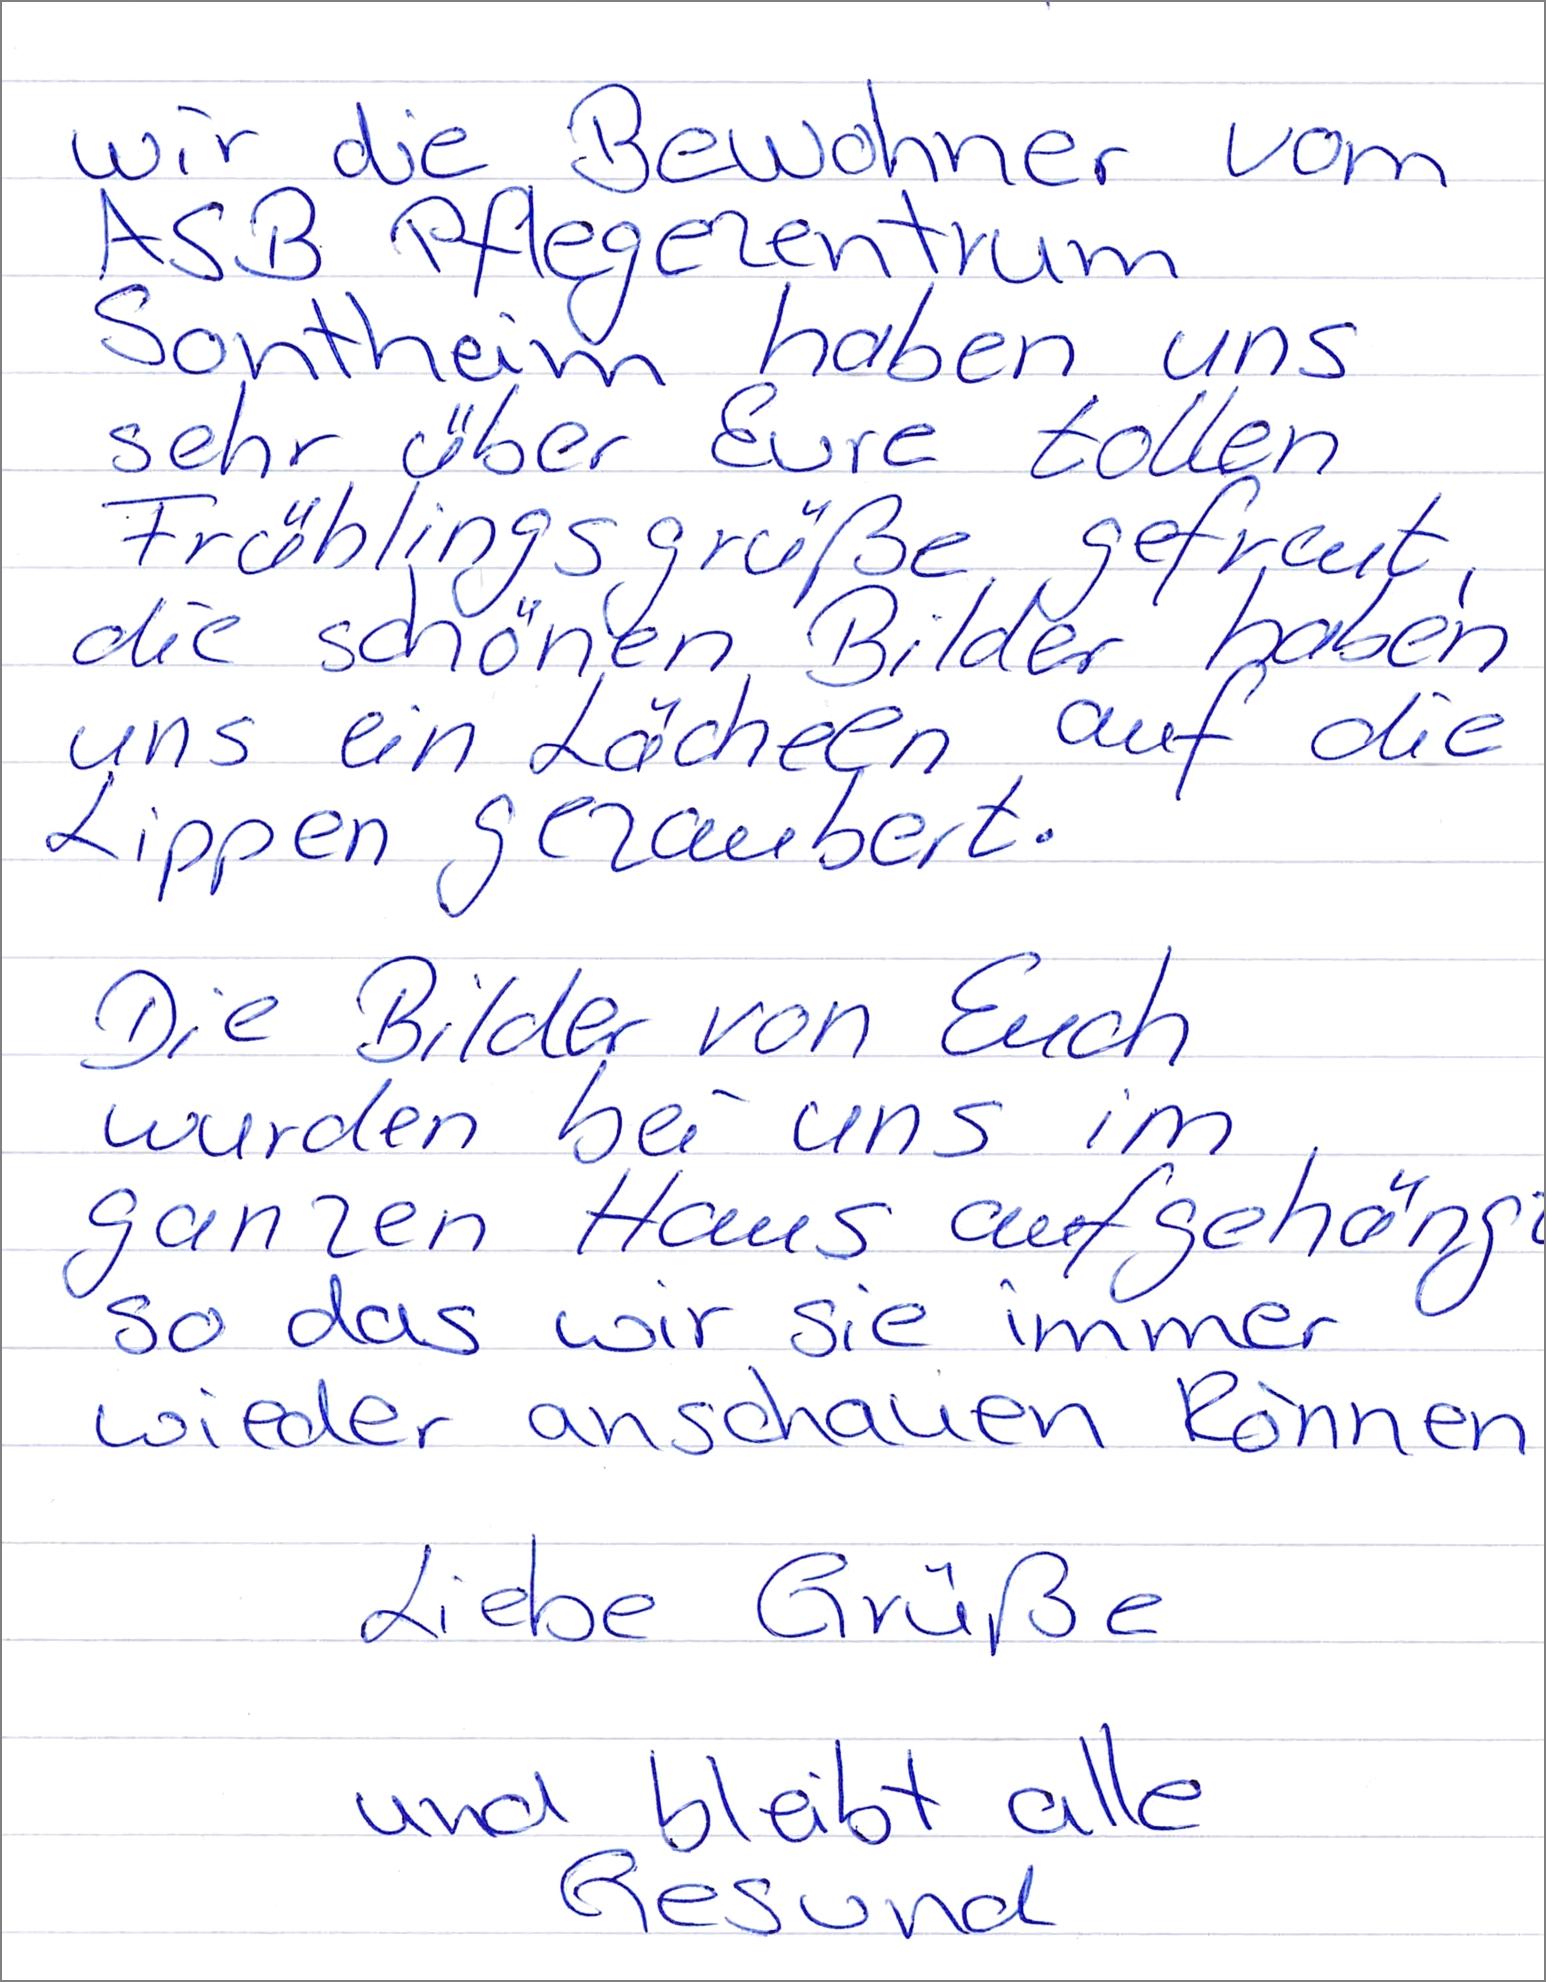 wir die Bewohner vom
ASB Pflegezentrum
Sontheim haben uns
sehr über Eure tollen
Frühlingsgrüße gefreut,
die schönen Bilder haben
uns ein Lächeln auf die
Lippen gezaubert.
Die Bilder von Euch
wurden bei uns im
ganzen Haus aufgehängt
so das wir sie immer
wieder anschauen können
Liebe Grüße
und bleibt alle
Gesund